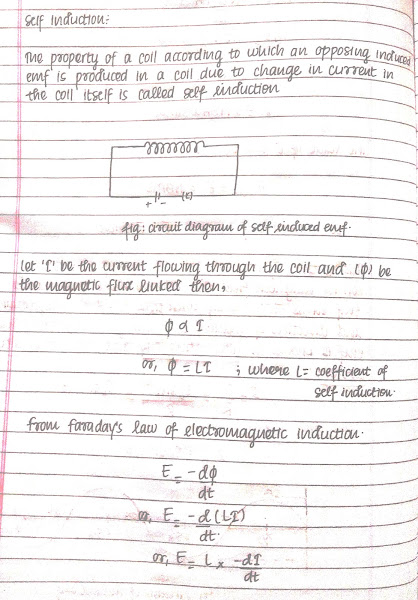 Self Induction:
The property of a coil according to which an opposing induced
emf is produced in a coil due to change in current in
the coil itself is called self induction
+ - (E)
fig: circuit diagram of self induced emf.
Let 'I' be the current flowing through the coil and (ϕ) be
the magnetic flux linked then,
ϕ α I
or, ϕ = LI ; where L = coefficient of
self induction.
From faraday's law of electromagnetic induction.
E = -dϕ/dt
or, E = -d(LI)/dt.
or, E = L × -dI/dt